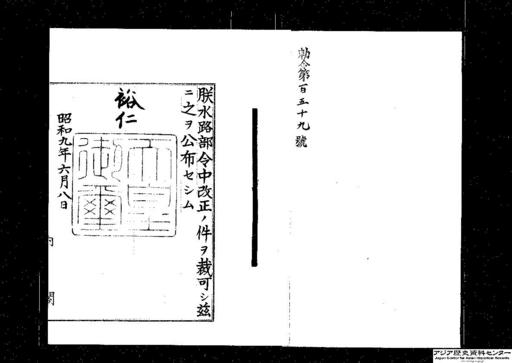 勅令第百五十九號
朕水路部令中改正ノ件ヲ裁可シ茲
ニ之ヲ公布セシム
裕仁
天皇御璽
昭和九年六月八日
内閣
アジア歴史資料センター
Japan Center for Asian Historical Records